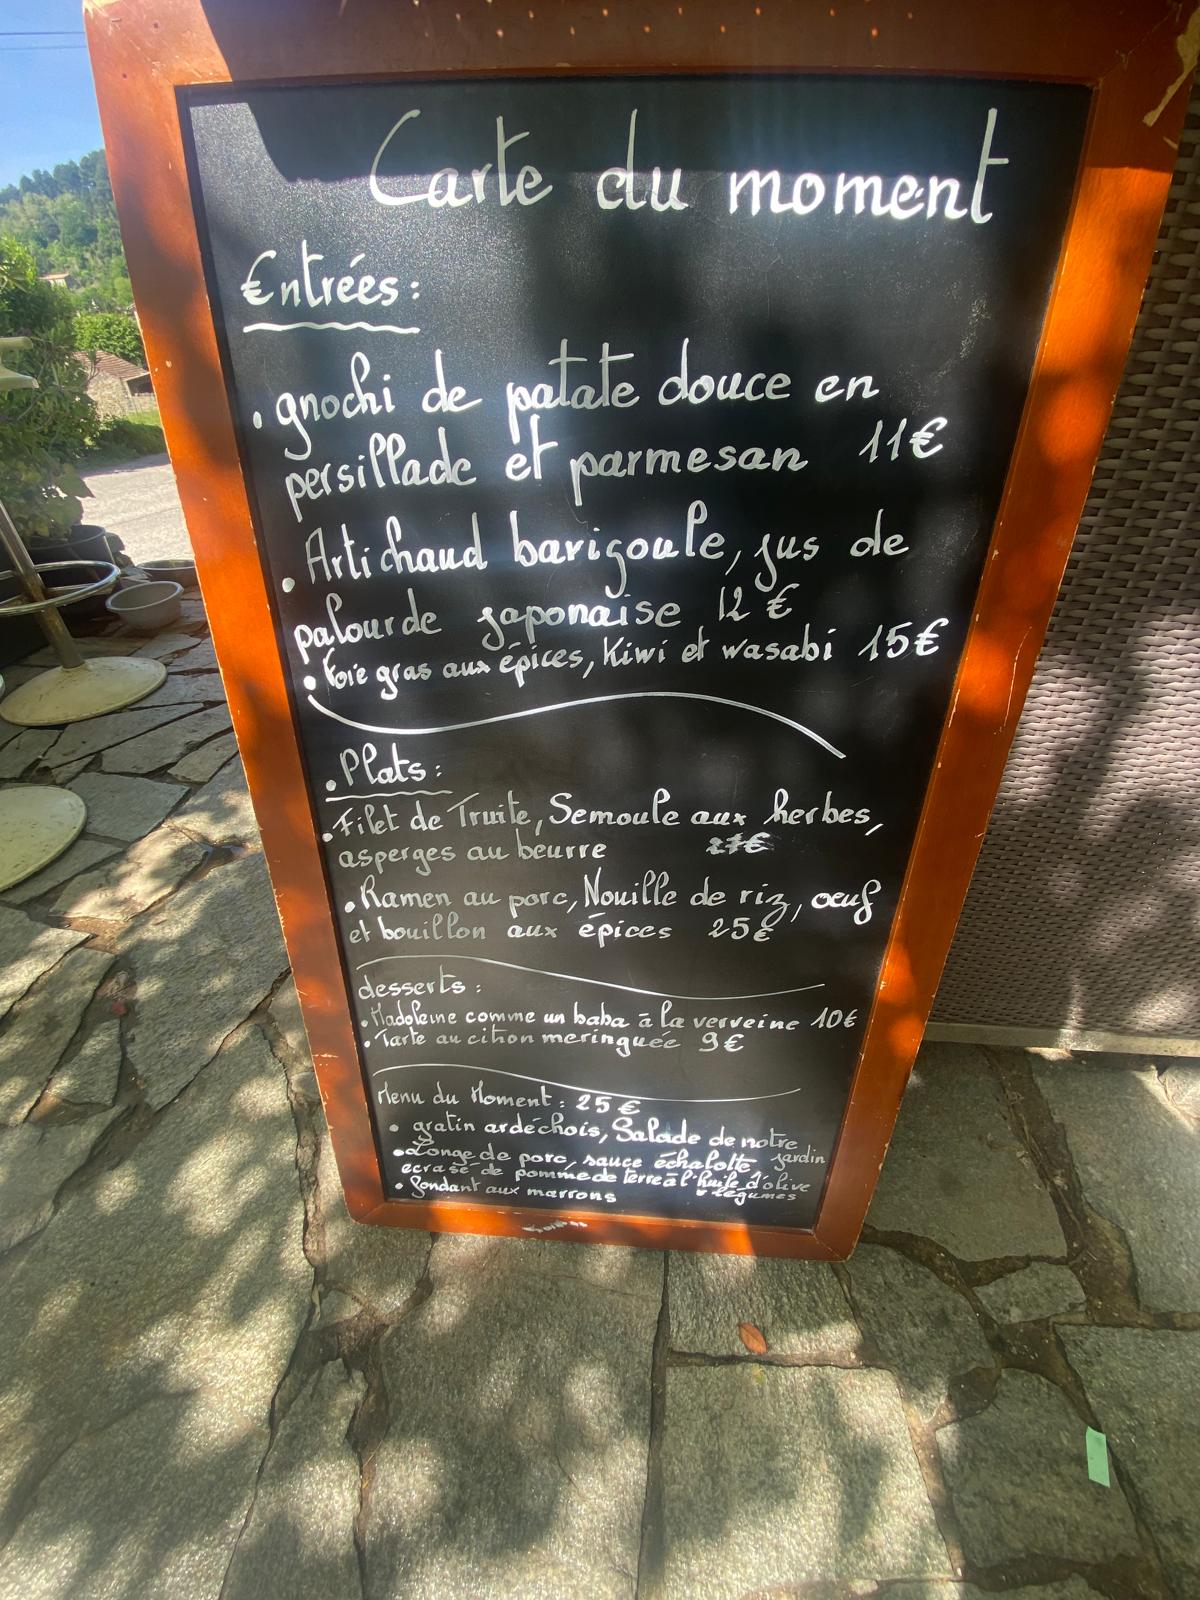 Carte du moment
Entrées:
• gnochi de patate douce en
persillade et parmesan 11€
• Artichaud barigoule, jus de
palourde japonaise 12 €
• Foie gras aux épices, Kiwi et wasabi 15€
• Plats:
• Filet de Truite, Semoule aux herbes,
asperges au beurre 27€
• Ramen au porc, Nouille de riz, oeuf
et bouillon aux épices 25€
desserts:
• Madeleine comme un baba à la verveine 10€
• Tarte au citron meringuée 9€
Menu du Moment: 25 €
• gratin ardéchois, Salade de notre
jardin
• Longe de porc, sauce échalotte
ecrasé de pomme de terre à l'huile d'olive
légumes
• fondant aux marrons